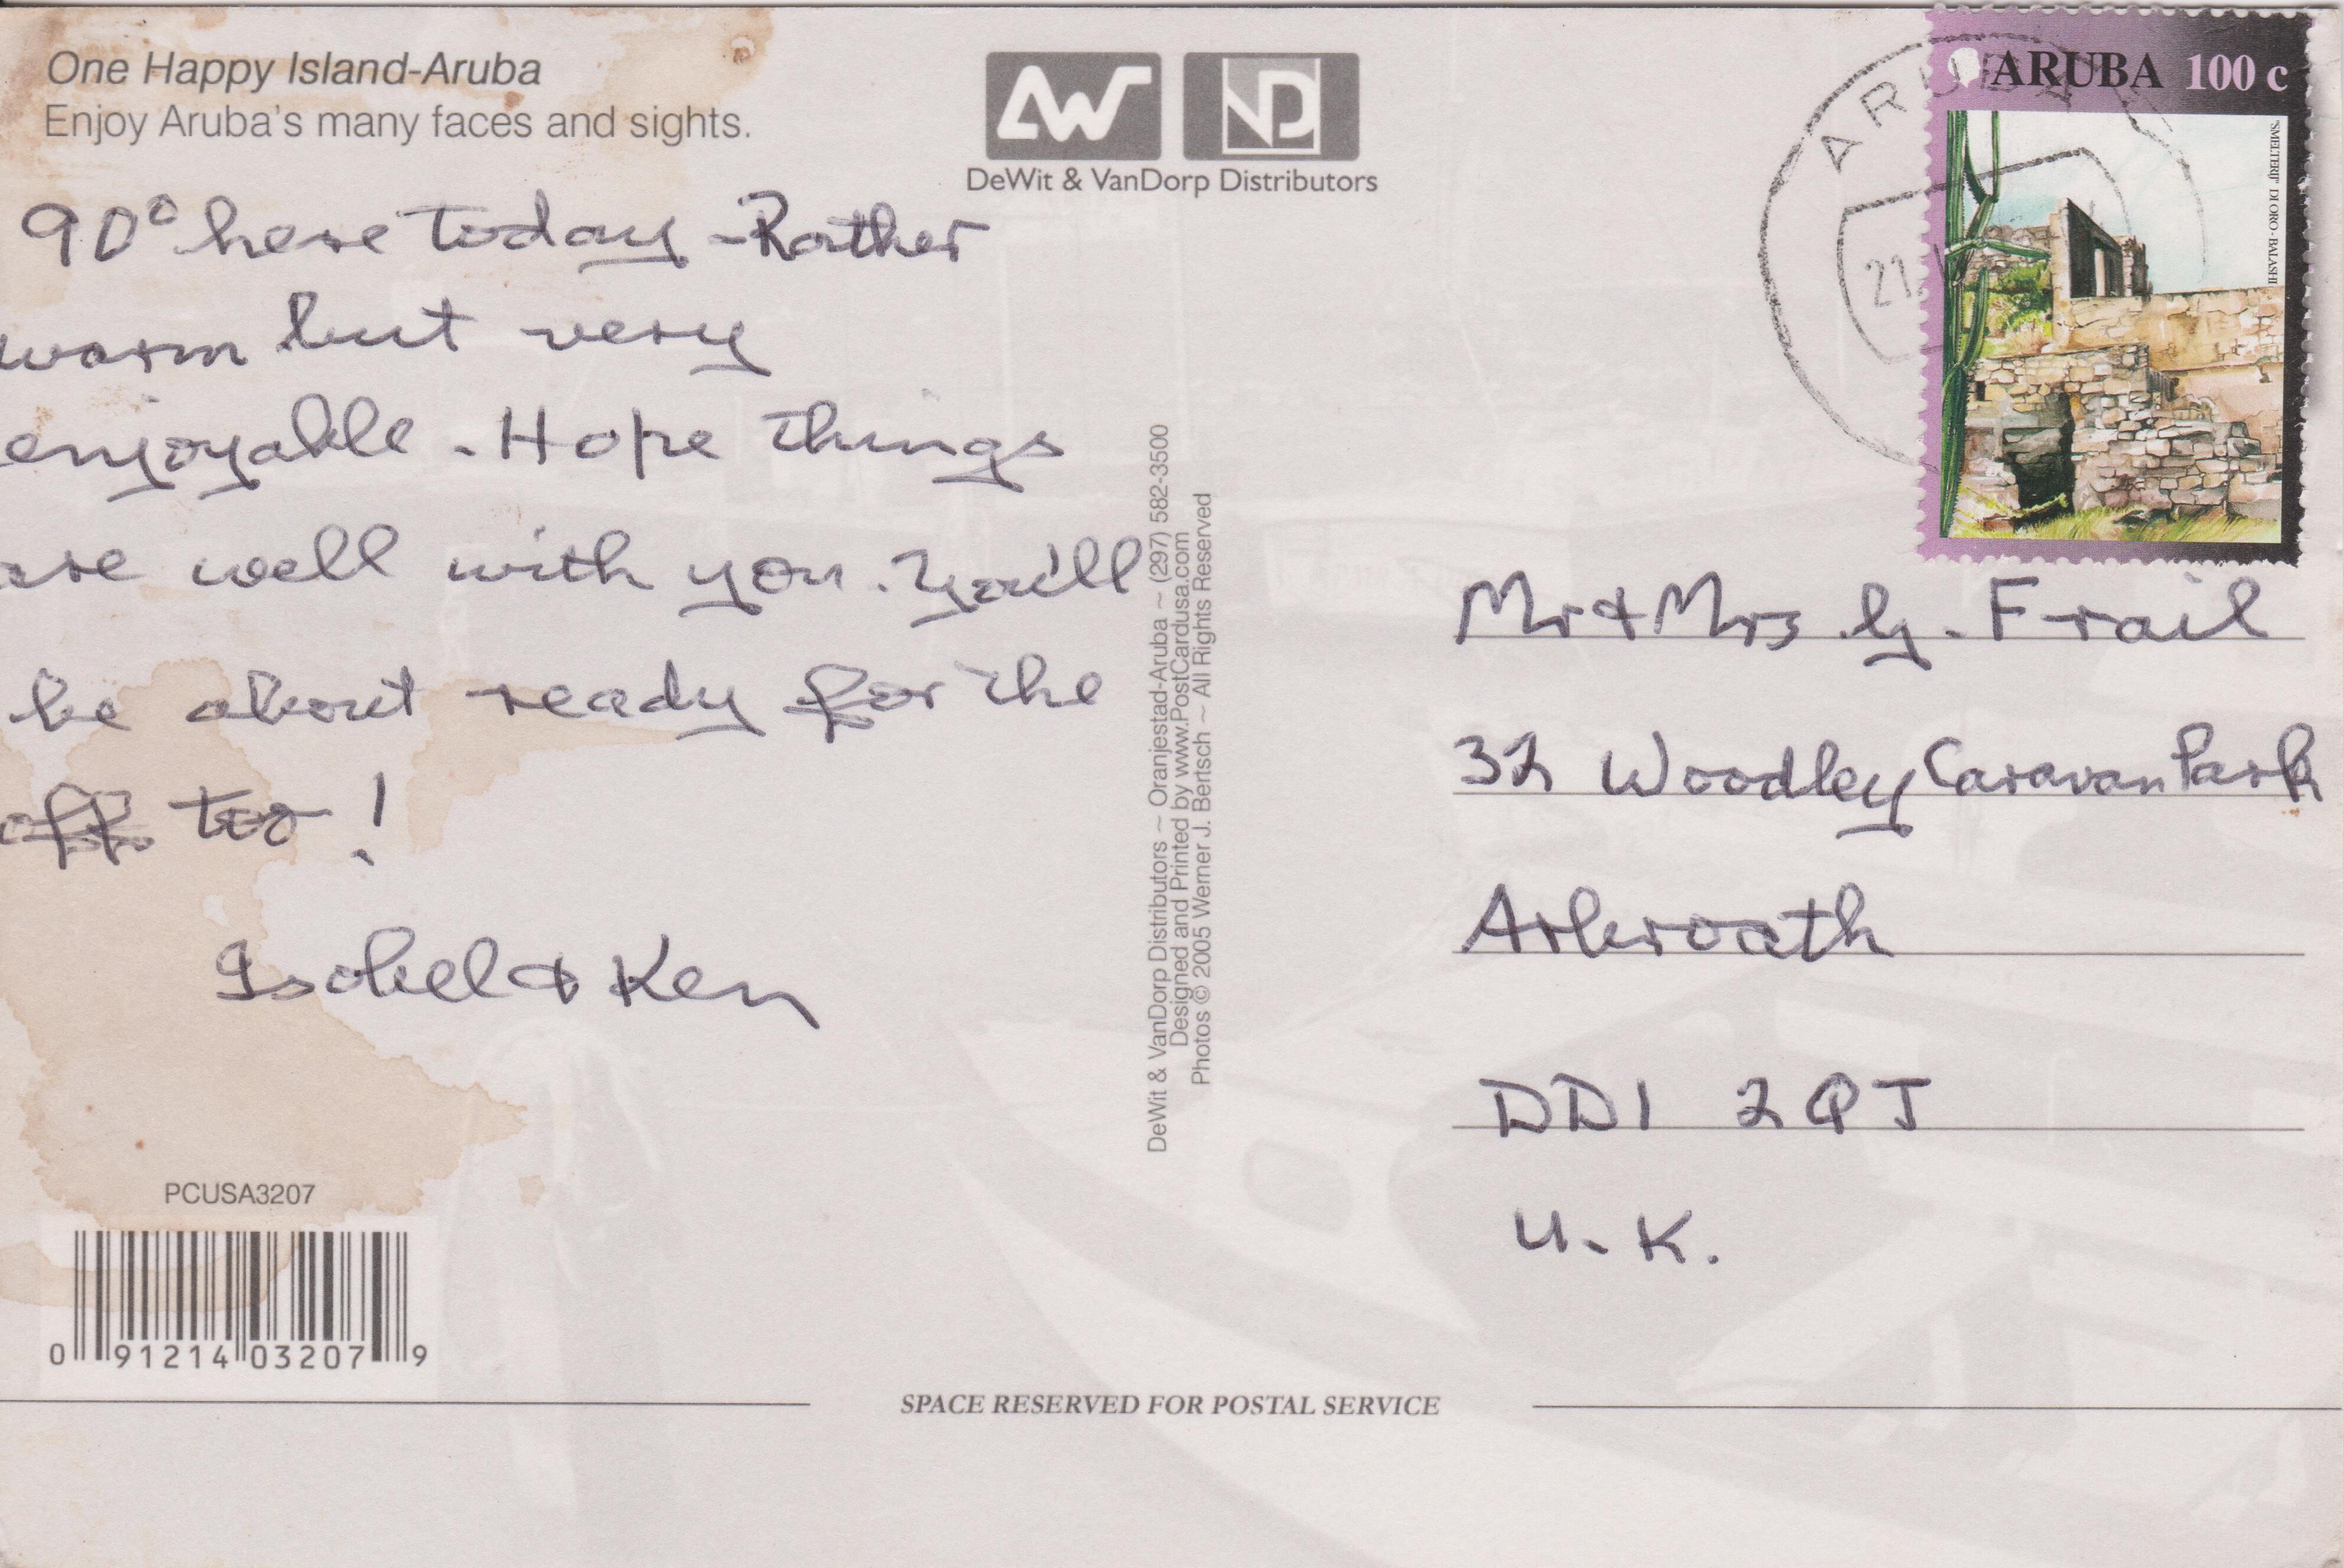 One Happy Island-Aruba
Enjoy Aruba's many faces and sights.
DeWit & VanDorp Distributors
90° here today - Rather
warm but very
enjoyable - Hope things
are well with you. You'll
be about ready for the
off too!
Isobel & Ken
PCUSA3207
0 91214 03207 9
DeWit & VanDorp Distributors ~ Oranjestad-Aruba ~ (297) 582-3500
Designed and Printed by www.PostCardusa.com
Photos © 2005 Werner J. Bertsch ~ All Rights Reserved
ARUBA 100 c
"SMELTERIJ" DI ORO - BALASHI
ARUBA
21
Mr & Mrs G. Frail
32 Woodley Caravan Park
Arbroath
DD1 2QJ
U.K.
SPACE RESERVED FOR POSTAL SERVICE